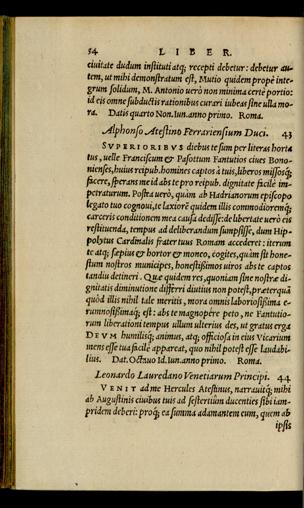 54 LIBER.
ciuitate dudum instituti atq; recepti debetur: debetur au-
tem, ut mihi demonstratum est, Mutio quidem propè inte-
grum solidum, M. Antonio uerò non minima certè portio:
id eis omne subductis rationibus curari iubeas sine ulla mo-
ra. Datis quarto Non. Iun. anno primo. Roma.
Alphonso Atestino Ferrariensium Duci. 43
SVPERIORIBVS diebus te sum per literas horta
tus, uelle Franciscum & Pasottum Fantutios ciues Bono-
nienses, huius reipub. homines captos à tuis, liberos missosq;
facere, sperans me id abs te pro reipub. dignitate facilè im-
petraturum. Postea uerò, quàm ab Hadrianorum episcopo
legato tuo cognoui, te laxiorē quidem illis commodioremq;
carceris conditionem mea causa dedisse: de libertate uerò eis
restituenda, tempus ad deliberandum sumpsisse, dum Hip-
polytus Cardinalis frater tuus Romam accederet: iterum
te atq; sæpius & hortor & moneo, cogites, quàm sit hone-
stum nostros municipes, honestissimos uiros abs te captos
tandiu detineri. Quæ quidem res, quoniam sine nostræ di-
gnitatis diminutione differri diutius non potest, præterquā
quòd illis nihil tale meritis, mora omnis laboriosissima e-
rumnosissimaq; est: abs te magnopere peto, ne Fantutio-
rum liberationi tempus ullum ulterius des, ut gratus erga
DEVM humilisq; animus, atq; officiosa in eius Vicarium
mens esse tua facilè appareat, quo nihil potest esse laudabi-
lius. Dat. Octauo Id. Iun. anno primo. Roma.
Leonardo Lauredano Venetiarum Principi. 44
VENIT ad me Hercules Atestinus, narrauitq; mihi
ab Augustinis ciuibus tuis ad sestertiûm ducenties sibi iam-
pridem deberi: proq; ea summa adamantem eum, quem ab
ipsis